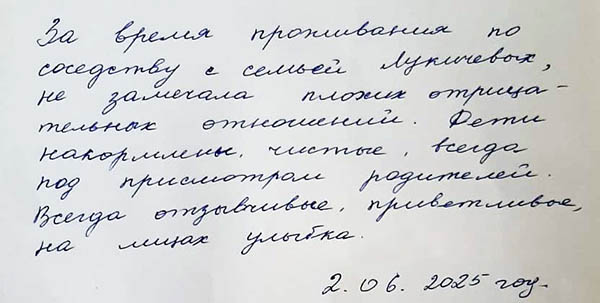 За время проживания по
соседству с семьёй Лукичевых,
не замечала плохих отрица-
тельных отношений. Дети
накормлены, чистые, всегда
под присмотром родителей.
Всегда отзывчивые, приветливые,
на лицах улыбка.
2.06.2025 год.